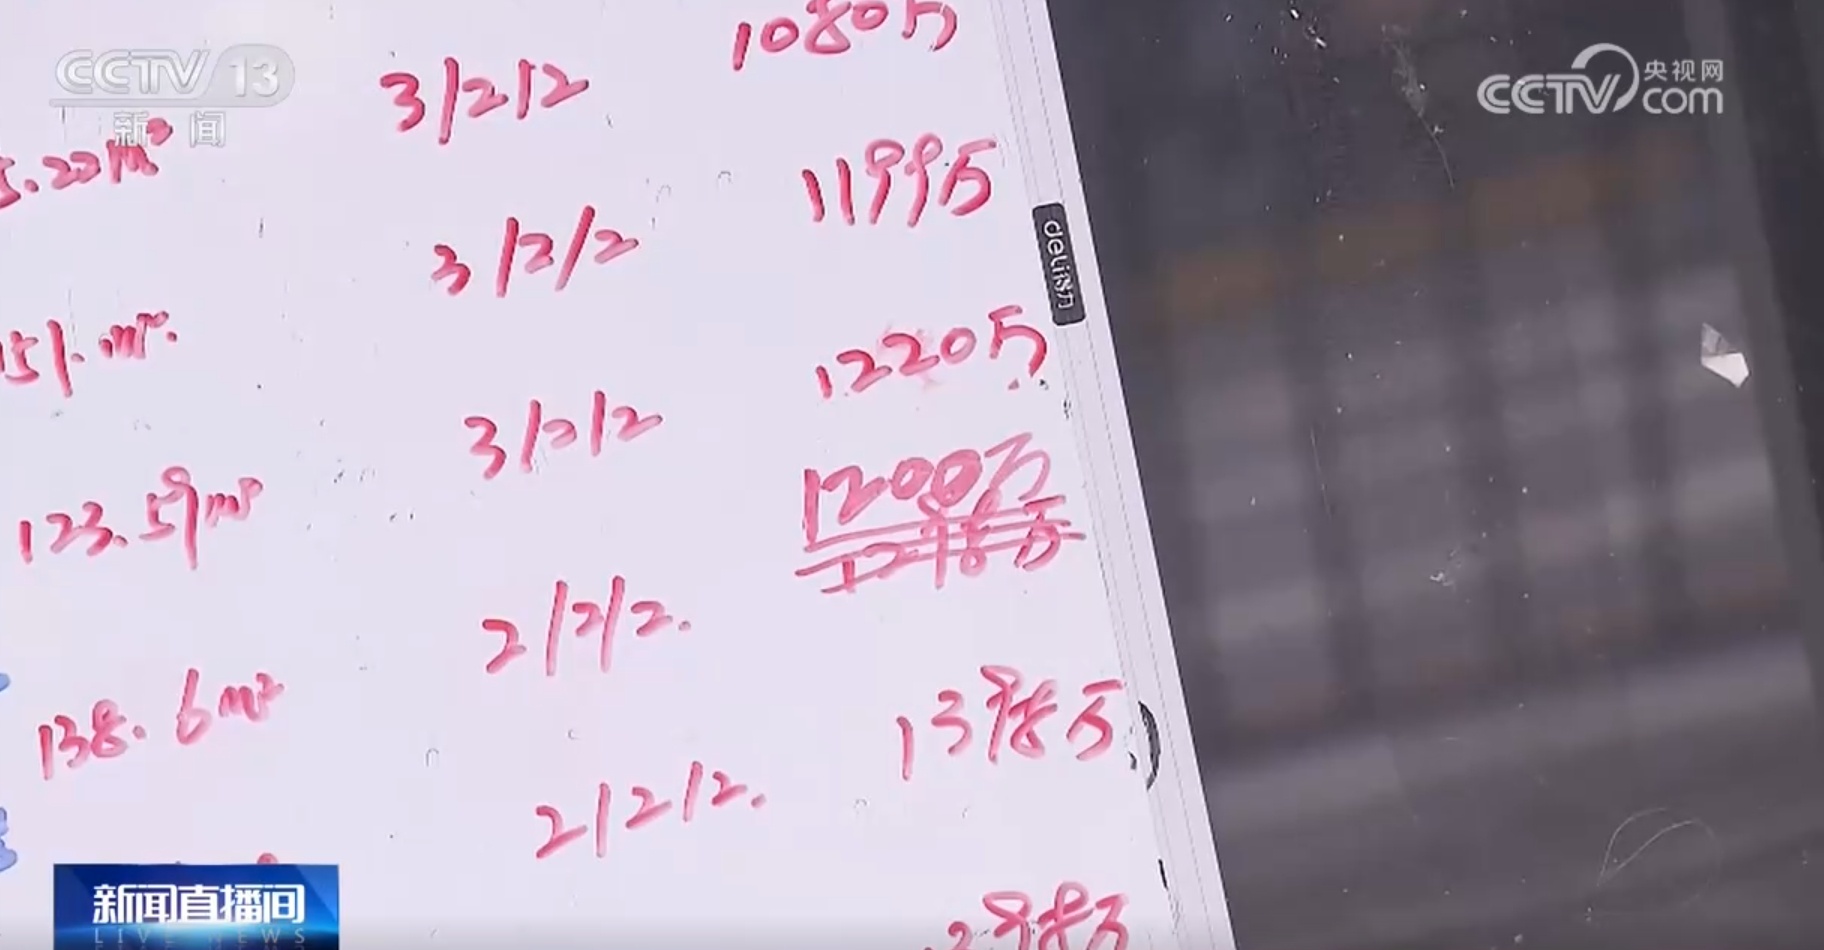 CCTV 13
新闻
央视网
CCTV.com
3/2/2 1080万
3/2/2 1199万
151.m². 3/2/2 1220万
123.59m² 2/2/2. 1200万
1298万
138.6m² 2/2/2. 1398万
deli得力
新闻直播间
LIVE NEWS